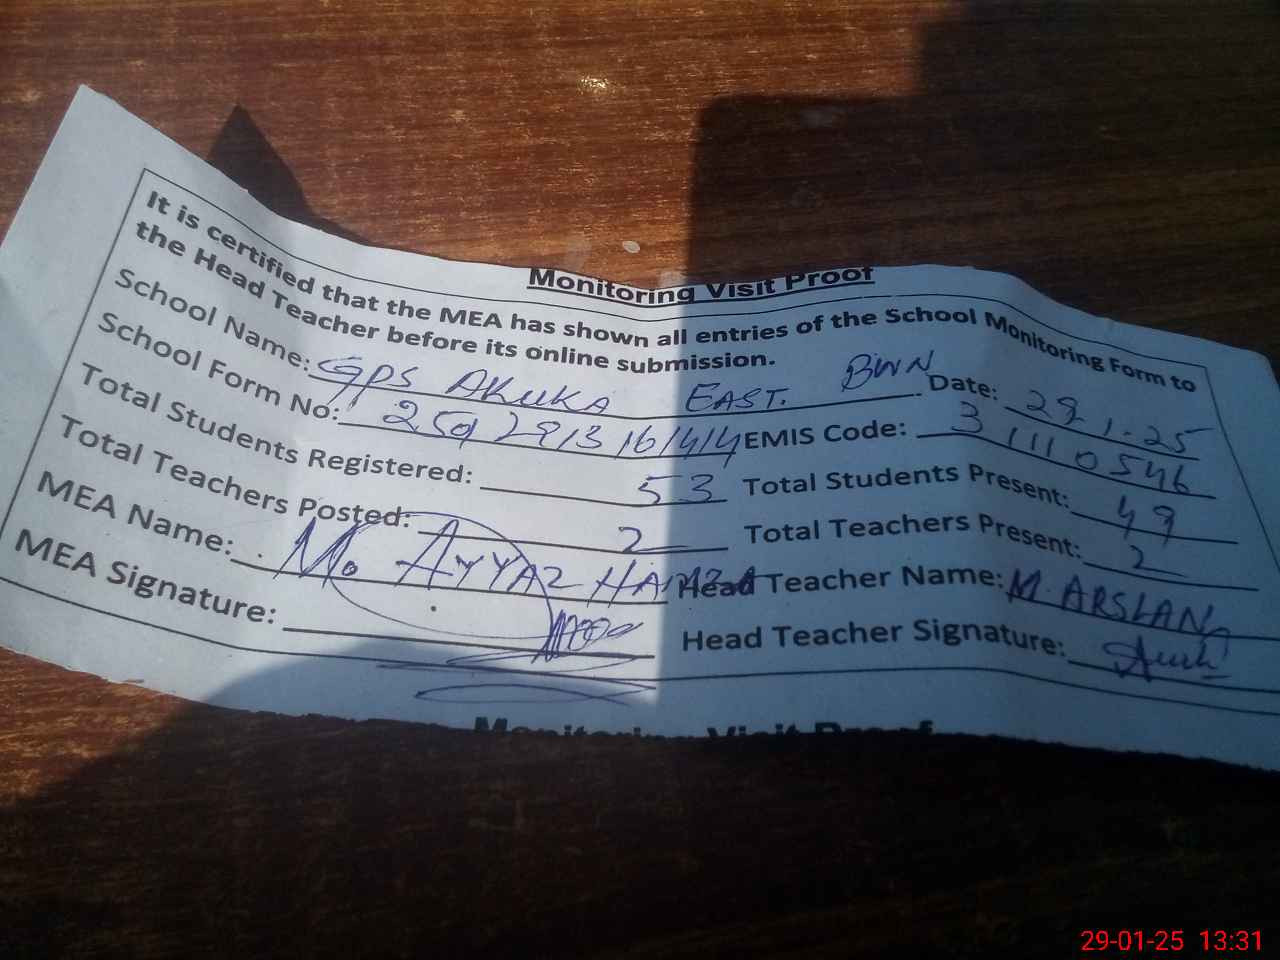 Monitoring Visit Proof
It is certified that the MEA has shown all entries of the School Monitoring Form to
the Head Teacher before its online submission.
School Name: GPS AKUKA EAST. BWN Date: 29.1.25
School Form No: EMIS Code: 31110546
Total Students Registered: 53 Total Students Present: 49
Total Teachers Posted: 2 Total Teachers Present: 2
MEA Name: M. AYYAZ HAMZA Head Teacher Name: M. ARSLAN
MEA Signature: Head Teacher Signature:
Monitoring Visit Proof
29-01-25 13:31